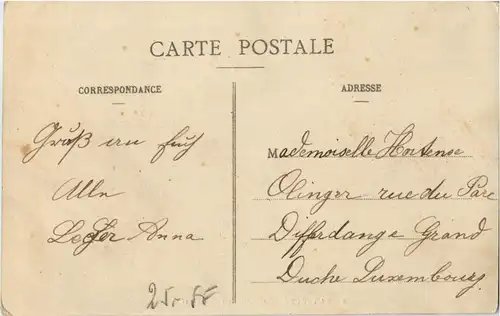 CARTE POSTALE
CORRESPONDANCE
ADRESSE
Gruß an Euch
Alle
Anna
Mademoiselle Hortense
Olinger rue du Parc
Differdange Grand
Duche Luxembourg